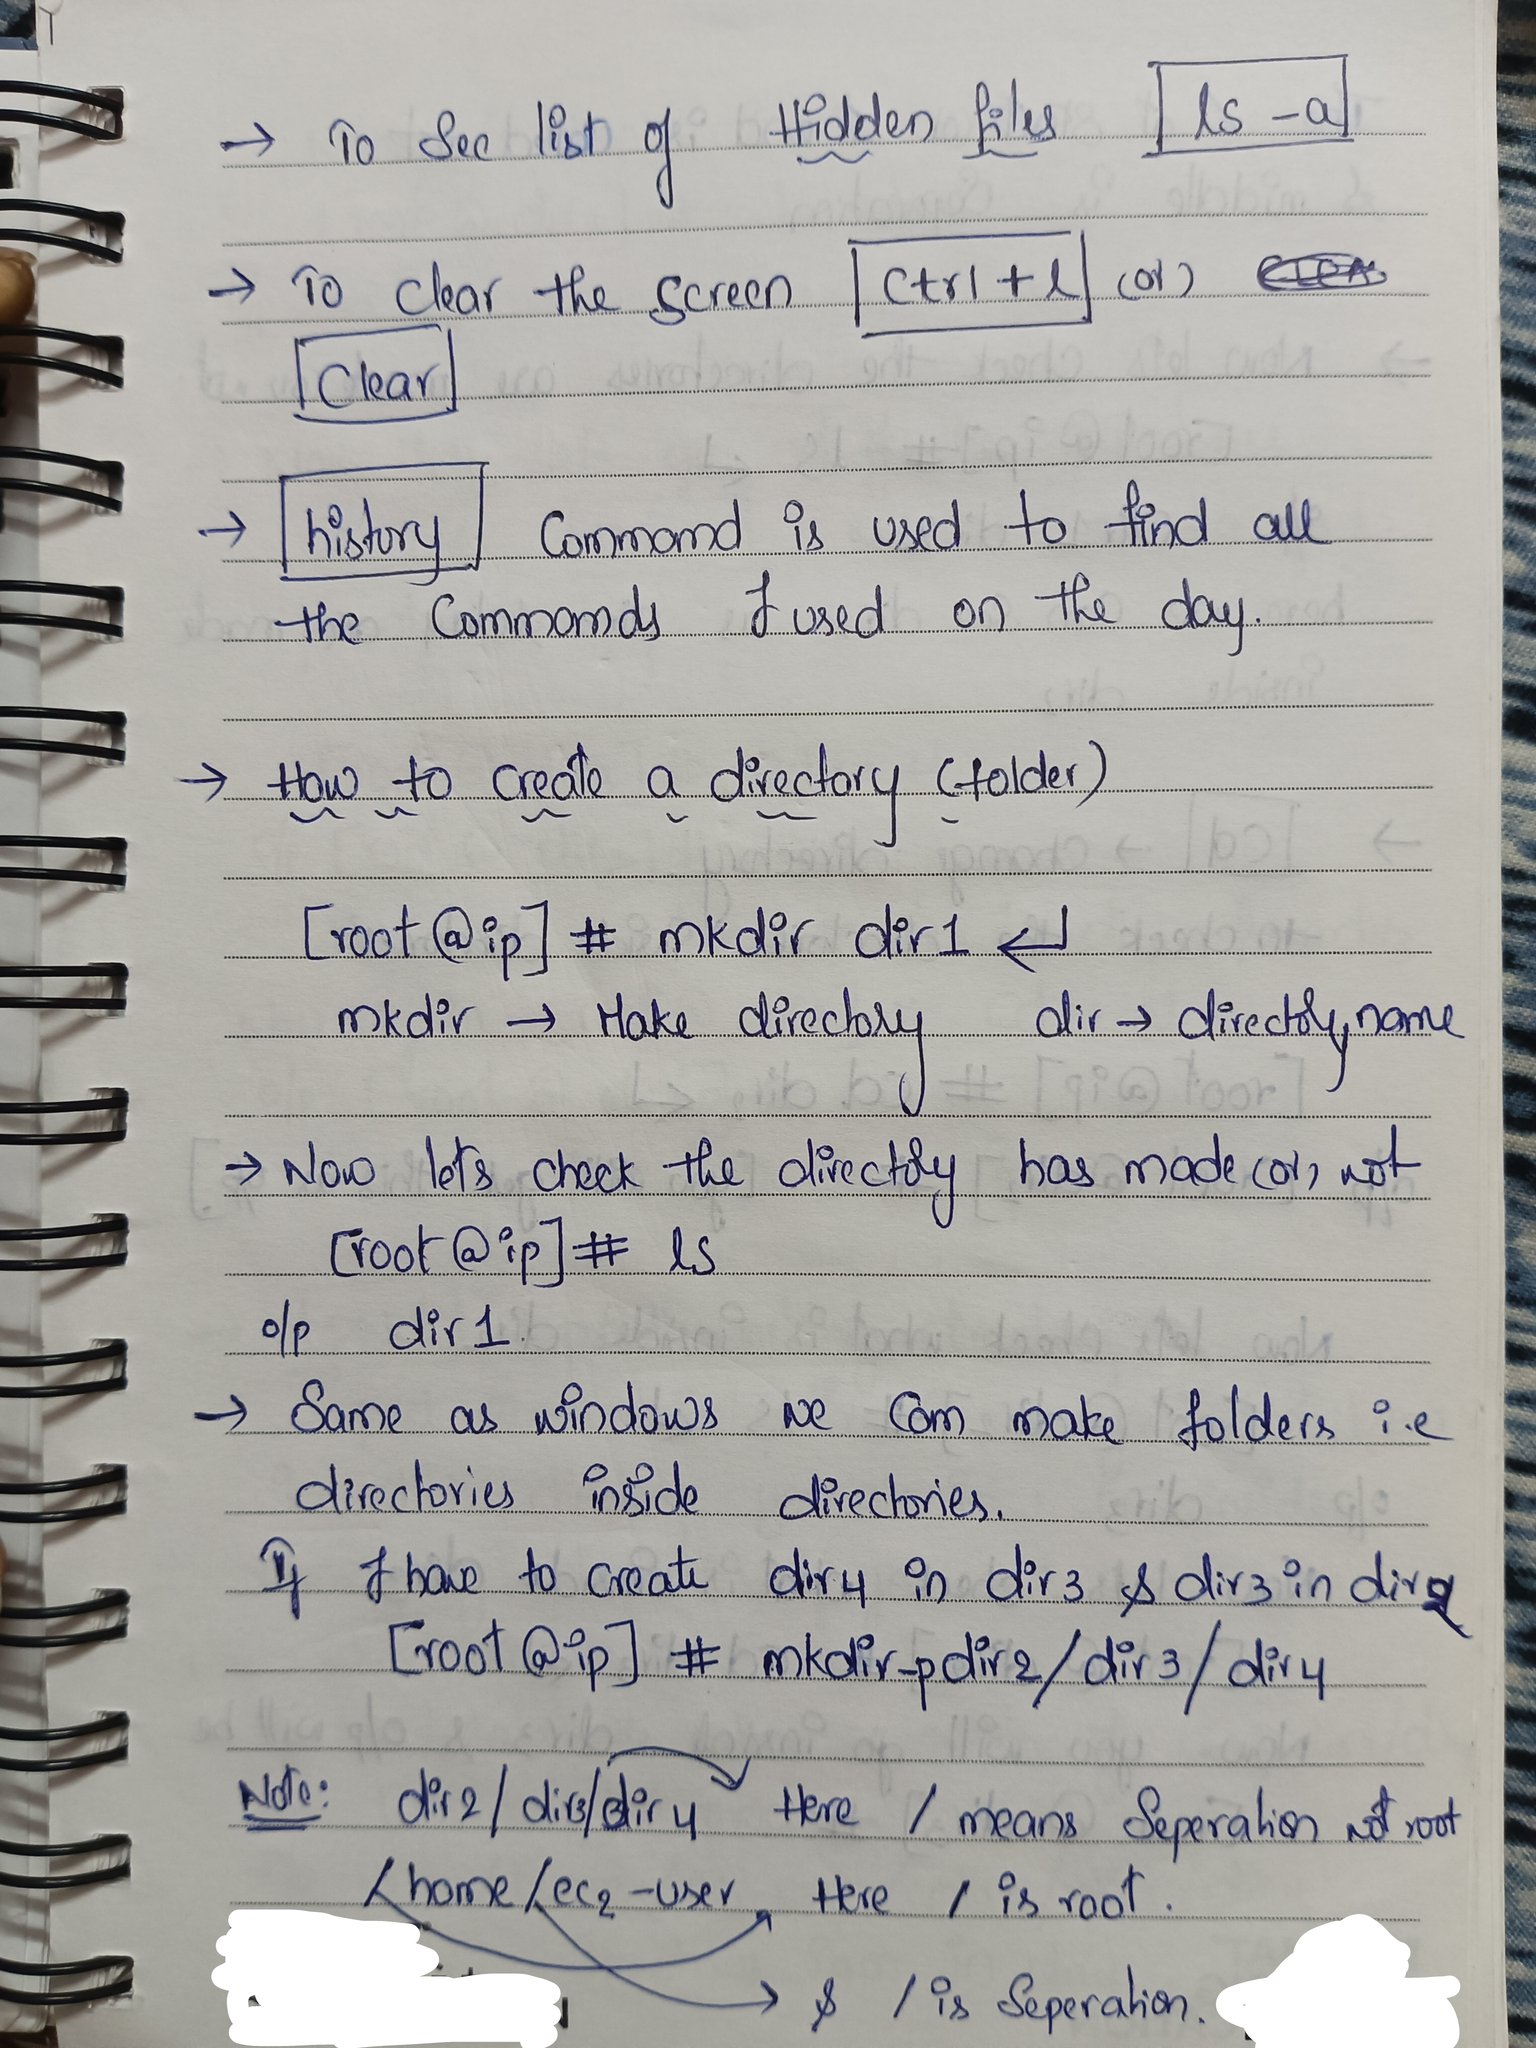 → To See list of Hidden files ls -a
→ To clear the screen Ctrl + l (or)
Clear
→ history Command is used to find all
the Commands I used on the day.
→ How to create a directory (folder)
[root@ip] # mkdir dir1 ↵
mkdir → Make directory dir → directory name
→ Now lets check the directory has made (or) not
[root@ip] # ls
o/p dir1.
→ Same as windows we Can make folders i.e
directories inside directories.
If I have to create dir4 in dir3 & dir3 in dir2
[root@ip] # mkdir -p dir2/dir3/dir4
Note: dir2/dir3/dir4 Here / means Seperation not root
/home/ec2-user Here / is root.
& / is Seperation.